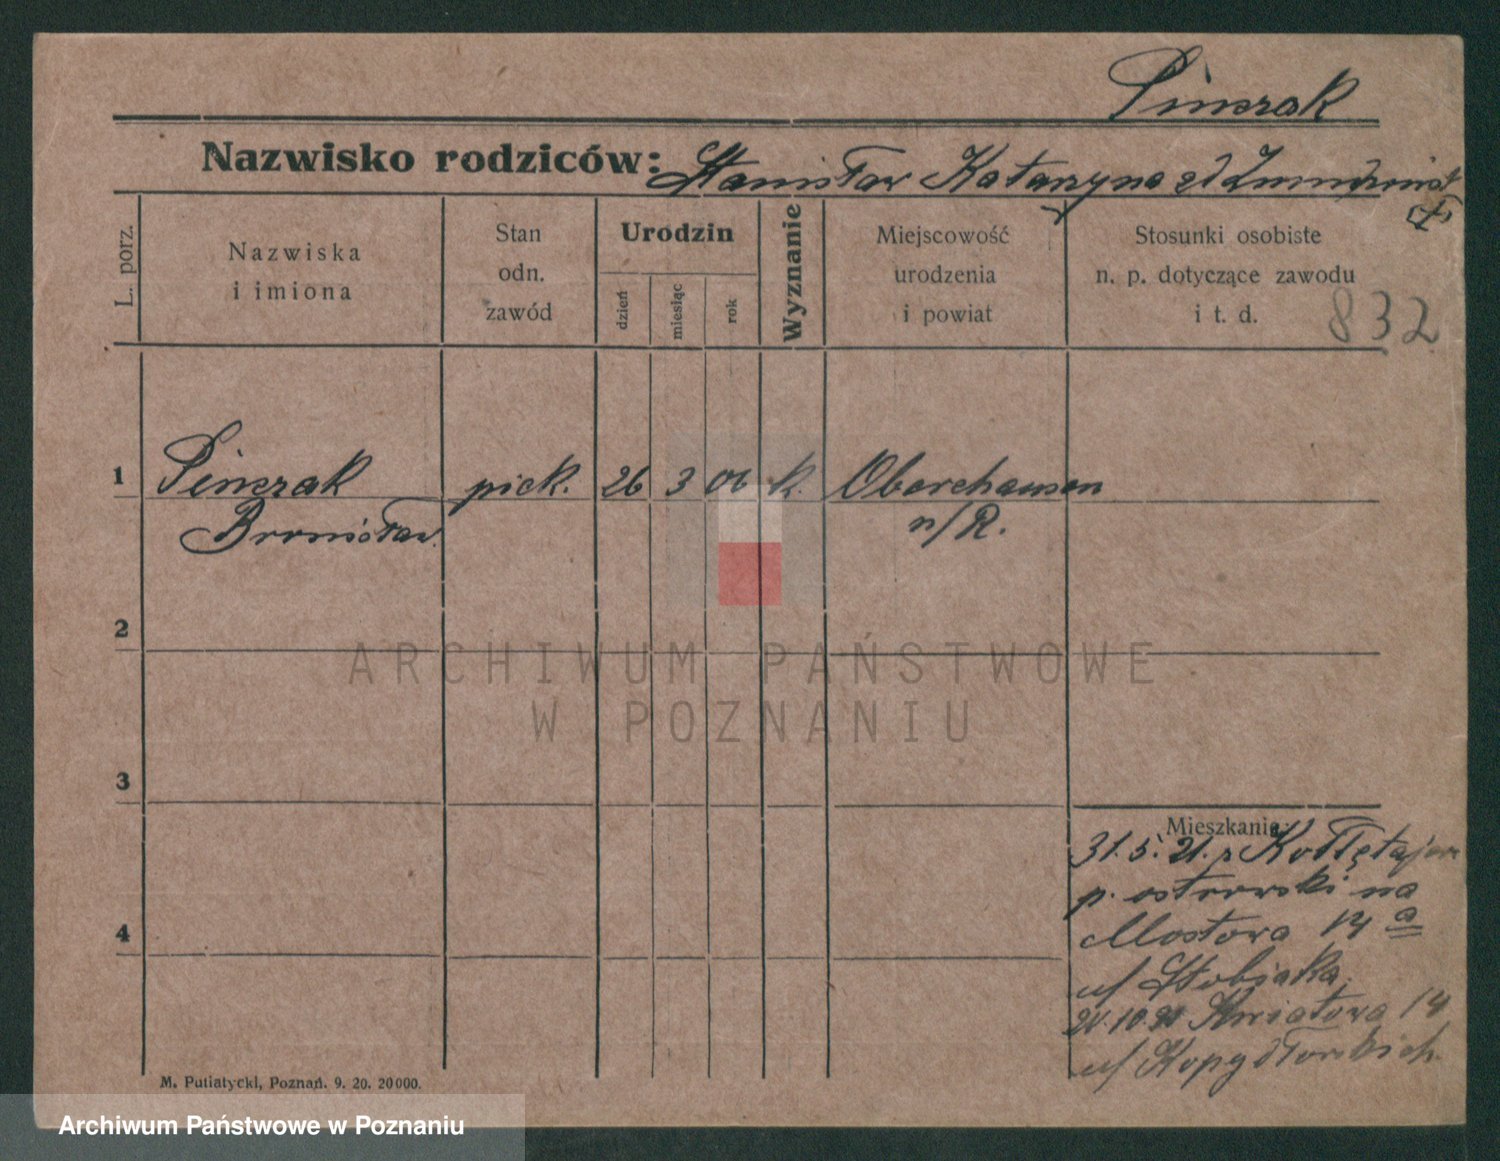 Pinczak
Nazwisko rodziców: Stanisław Katarzyna
L. porz.
Nazwiska
i imiona
Stan
odn.
zawód
Urodzin
dzień
miesiąc
rok
Wyznanie
Miejscowość
urodzenia
i powiat
Stosunki osobiste
n. p. dotyczące zawodu
i t. d.
832
1 Pinczak piek. 26 3 06 k. Oberchausen
Bronisław. n/R.
2
3
4
Mieszkanie:
31.5.21. z
p. ostrowski na
Mostowa 14 a
u/ Stobiaka
Kwiatowa 14
u/ Kopydłowskich.
M. Putiatycki, Poznań. 9. 20. 20000.
ARCHIWUM PAŃSTWOWE
W POZNANIU
Archiwum Państwowe w Poznaniu